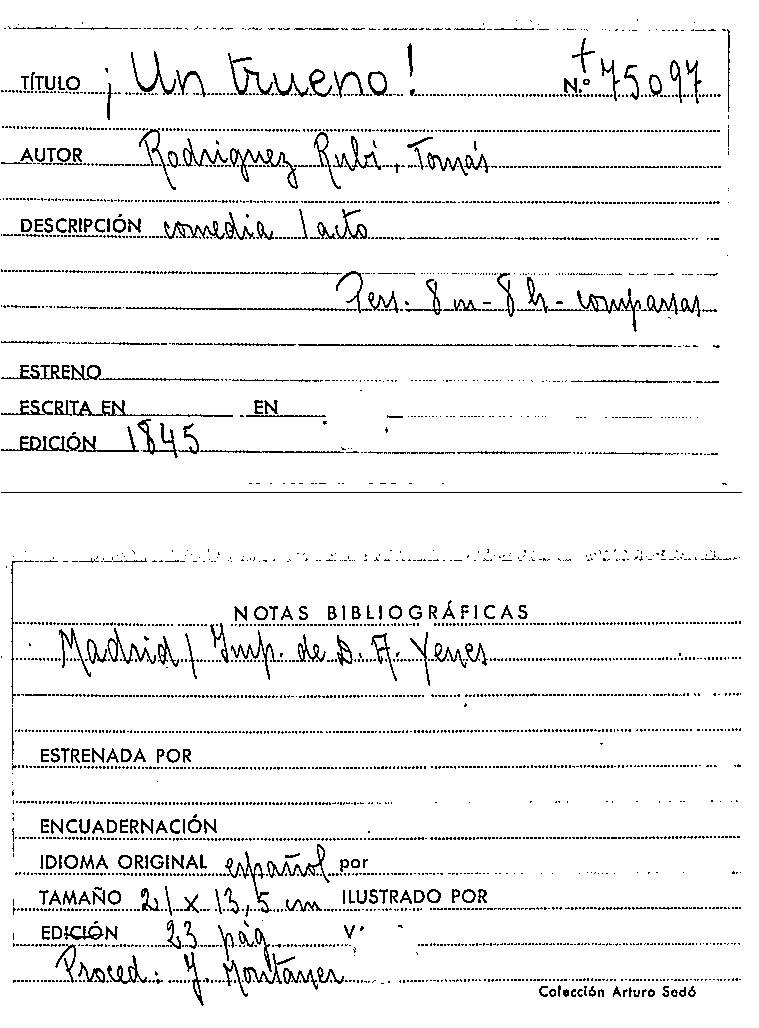 TÍTULO ¡Un trueno! N.º 75097
AUTOR Rodriguez Rubí, Tomás
DESCRIPCIÓN comedia 1 acto
Pers. 8 m - 8 h - comparsas
ESTRENO
ESCRITA EN EN
EDICIÓN 1845
NOTAS BIBLIOGRÁFICAS
Madrid / Imp. de D. A. Yenes
ESTRENADA POR
ENCUADERNACIÓN
IDIOMA ORIGINAL español por
TAMAÑO 21 x 13,5 cm ILUSTRADO POR
EDICIÓN 23 pág. V
Proced: J. Montaner
Colección Arturo Sedó